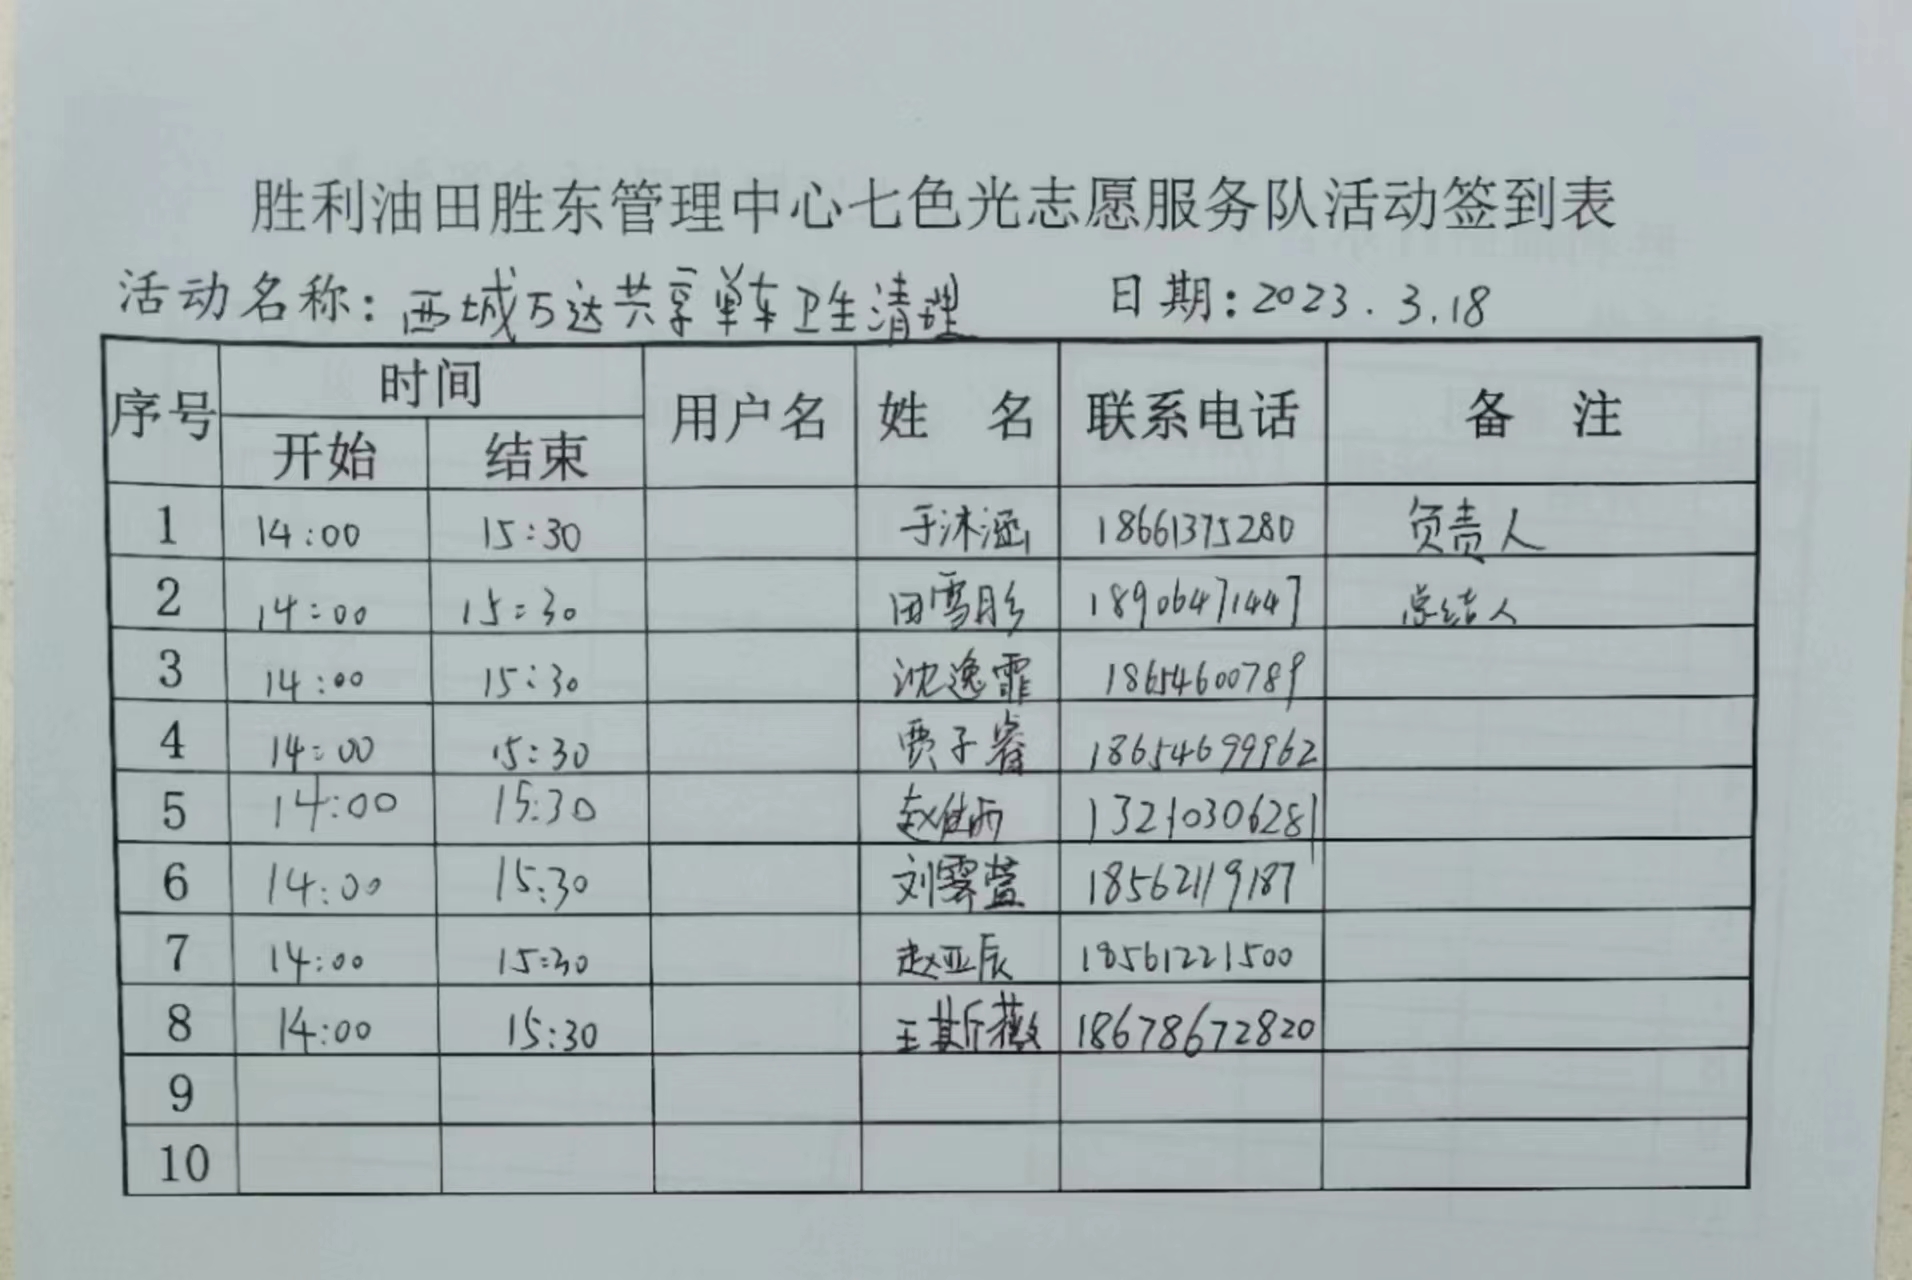 胜利油田胜东管理中心七色光志愿服务队活动签到表
活动名称：西城万达共享单车卫生清理 日期：2023.3.18
序号 时间 用户名 姓 名 联系电话 备 注
开始 结束
1 14:00 15:30 于沐涵 18661375280 负责人
2 14:00 15:30 田雪彤 18906471447 总结人
3 14:00 15:30 沈逸霏 18654600789
4 14:00 15:30 贾子睿 18654699962
5 14:00 15:30 赵佳 13210306281
6 14:00 15:30 刘霁萱 18562119187
7 14:00 15:30 赵亚辰 18561221500
8 14:00 15:30 王斯薇 18678672820
9
10